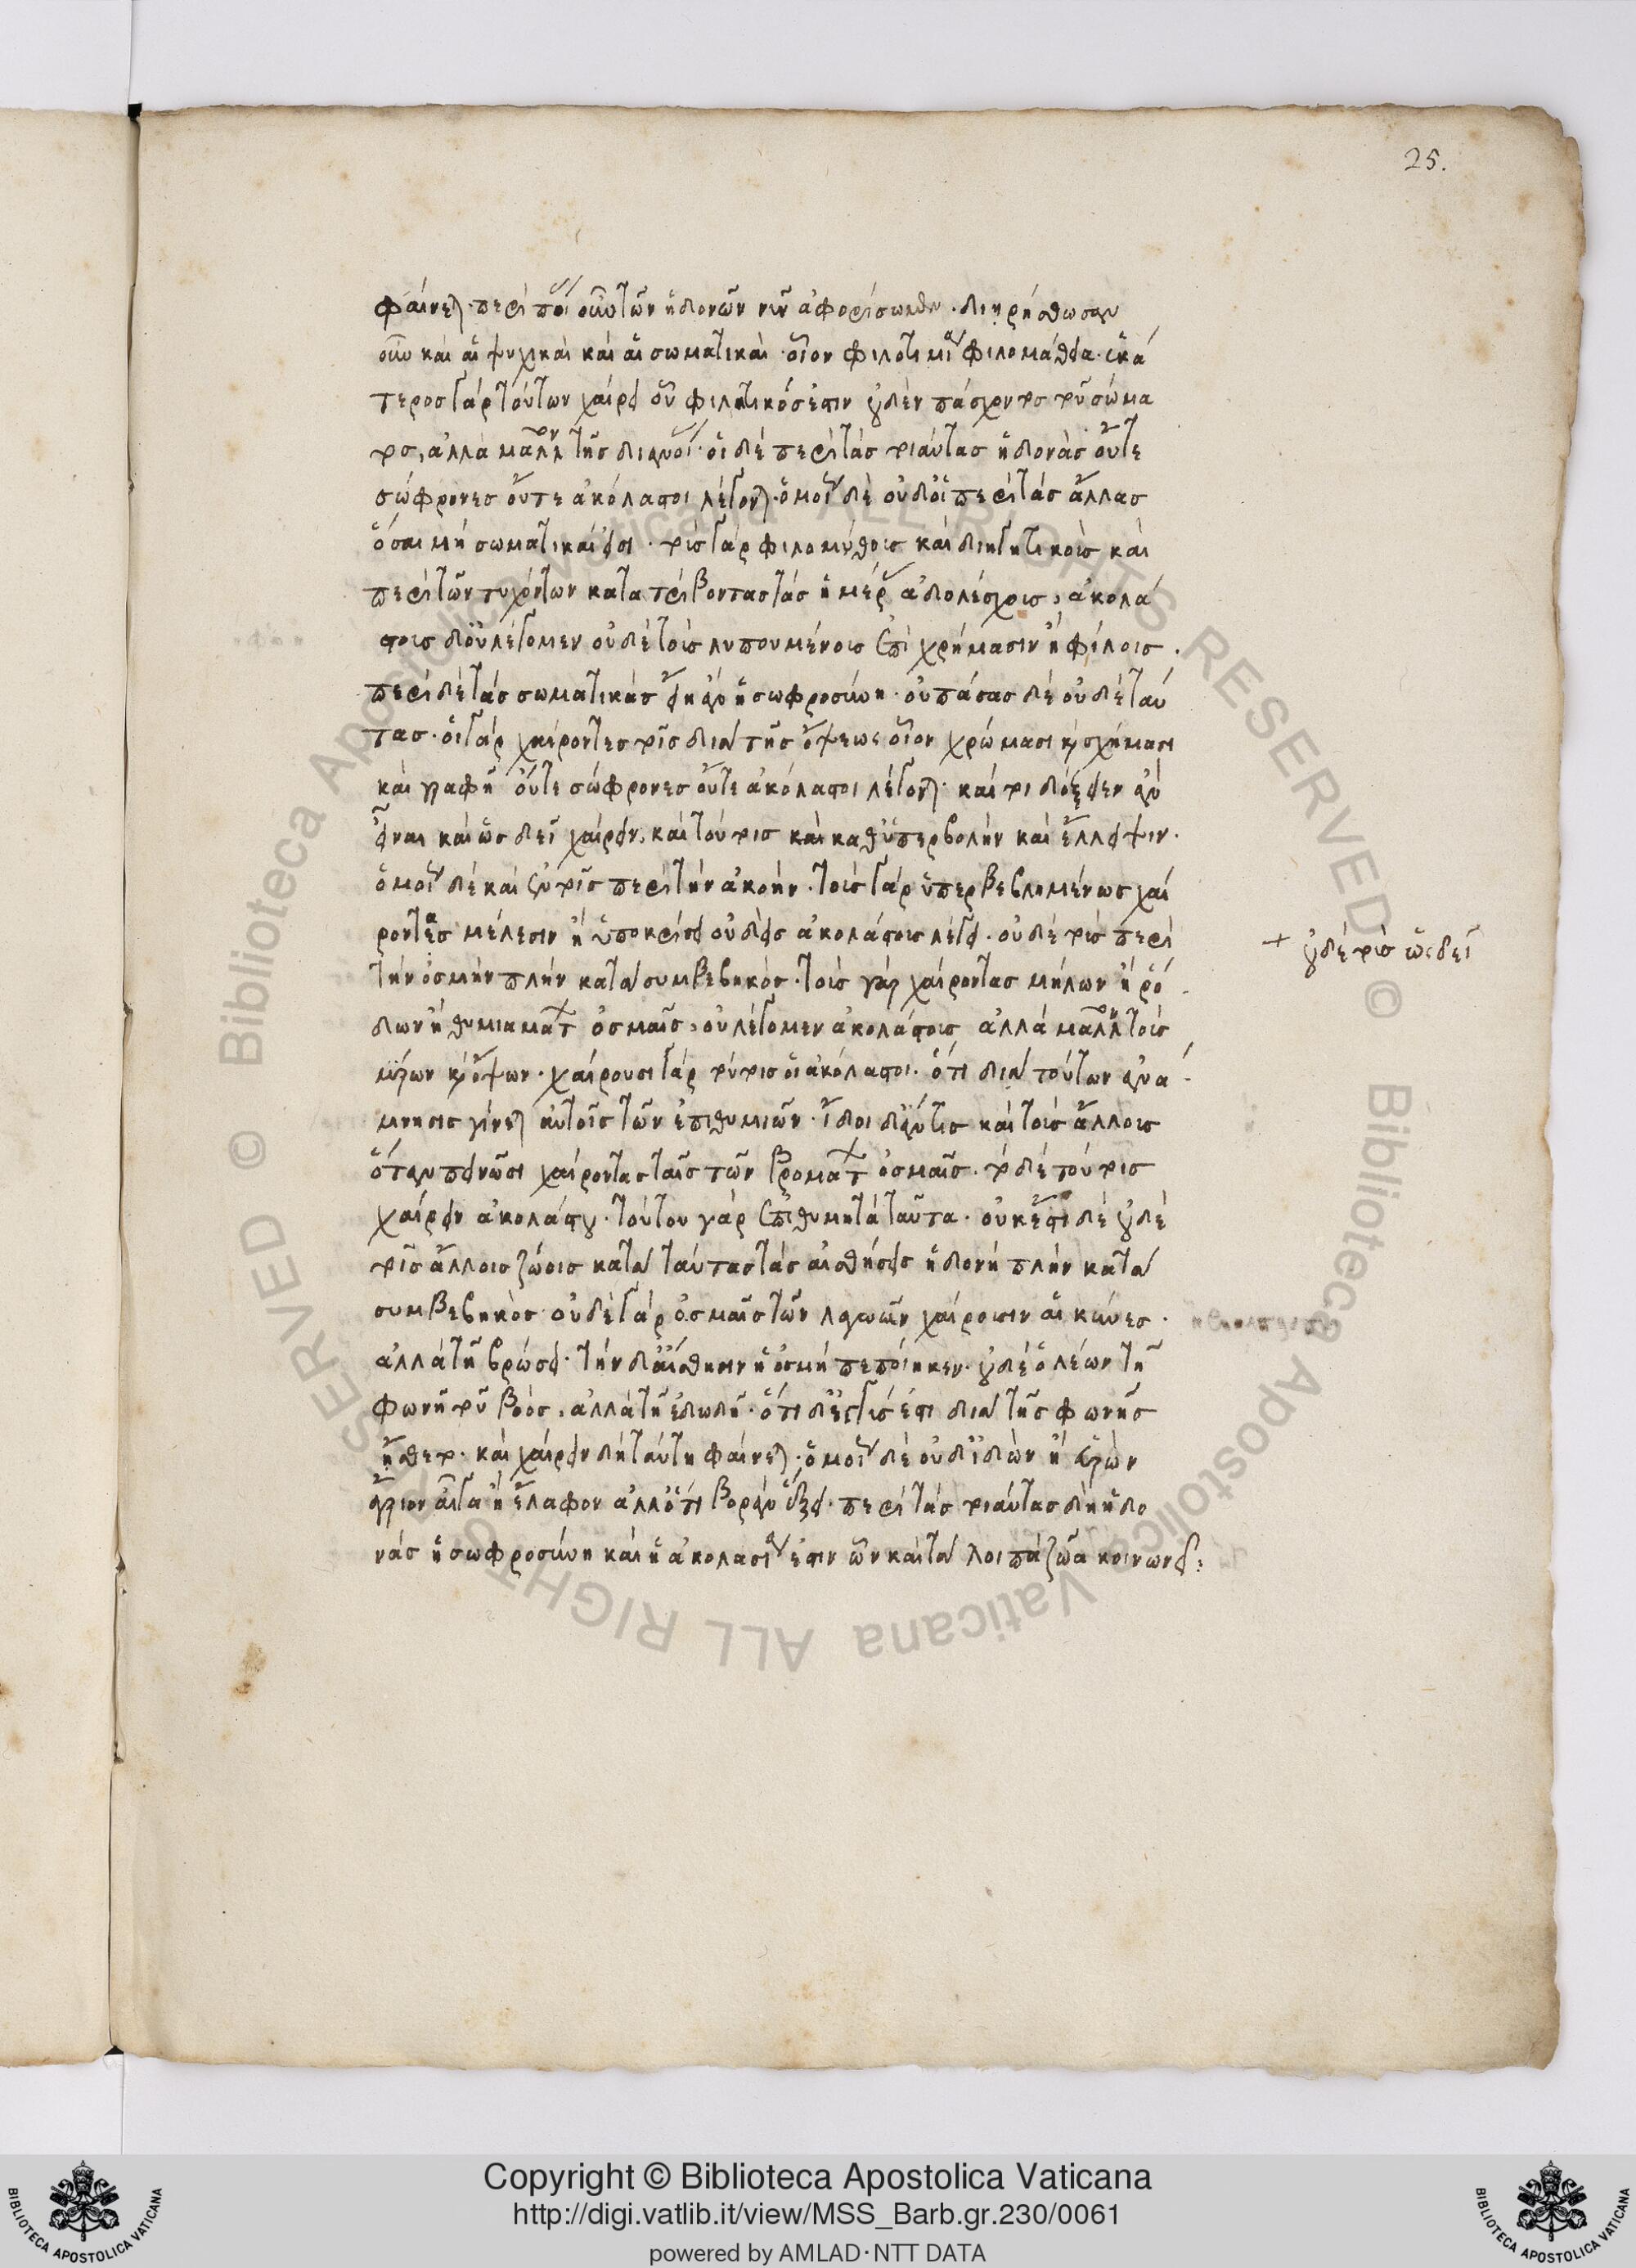 25.
φαίνεται· περὶ ποίας οὖν τῶν ἡδονῶν νῦν ἀφορίσωμεν· διῃρήσθωσαν
οὖν καὶ αἱ ψυχικαὶ καὶ αἱ σωματικαὶ· οἷον φιλοτιμία φιλομάθεια· ἑκά
τερος γὰρ τούτων χαίρει οὗ φιλητικός ἐστιν οὐδὲν πάσχοντος τοῦ σώμα
τος, ἀλλὰ μᾶλλον τῆς διανοίας· οἱ δὲ περὶ τὰς τοιαύτας ἡδονὰς οὔτε
σώφρονες οὔτε ἀκόλαστοι λέγονται· ὁμοίως δὲ οὐδ' οἱ περὶ τὰς ἄλλας
ὅσαι μὴ σωματικαί εἰσι· τοὺς γὰρ φιλομύθους καὶ διηγητικοὺς καὶ
περὶ τῶν τυχόντων κατατρίβοντας τὰς ἡμέρας ἀδολέσχους, ἀκολά
στους δ' οὐ λέγομεν οὐδὲ τοὺς λυπουμένους ἐπὶ χρήμασιν ἢ φίλοις·
περὶ δὲ τὰς σωματικὰς εἴη ἂν ἡ σωφροσύνη· οὐ πάσας δὲ οὐδὲ ταύ
τας· οἱ γὰρ χαίροντες τοῖς διὰ τῆς ὄψεως οἷον χρώμασι καὶ σχήμασι
καὶ γραφῇ οὔτε σώφρονες οὔτε ἀκόλαστοι λέγονται· καίτοι δόξειεν ἂν
εἶναι καὶ ὡς δεῖ χαίρειν, καὶ τούτοις καὶ καθ' ὑπερβολὴν καὶ ἔλλειψιν.
ὁμοίως δὲ καὶ ἐν τοῖς περὶ τὴν ἀκοήν· τοὺς γὰρ ὑπερβεβλημένως χαί
ροντας μέλεσιν ἢ ὑποκρίσει οὐδεὶς ἀκολάστους λέγει· οὐδὲ τοὺς περὶ
+ οὐδὲ τοὺς ὡς δεῖ
τὴν ὀσμὴν πλὴν κατὰ συμβεβηκός· τοὺς γὰρ χαίροντας μήλων ἢ ῥό
δων ἢ θυμιαμάτων ὀσμαῖς, οὐ λέγομεν ἀκολάστους ἀλλὰ μᾶλλον τοὺς
μύρων καὶ ὄψων· χαίρουσι γὰρ τούτοις οἱ ἀκόλαστοι· ὅτι διὰ τούτων ἀνά
μνησις γίνεται αὐτοῖς τῶν ἐπιθυμιῶν· ἴδοι δ' ἄν τις καὶ τοὺς ἄλλους
ὅταν πεινῶσι χαίροντας ταῖς τῶν βρωμάτων ὀσμαῖς· τὸ δὲ τούτοις
χαίρειν ἀκολάστου· τούτου γὰρ ἐπιθυμητὰ ταῦτα· οὐκ ἔστι δὲ οὐδὲ
τοῖς ἄλλοις ζώοις κατὰ ταύτας τὰς αἰσθήσεις ἡδονὴ πλὴν κατὰ
συμβεβηκός· οὐδὲ γὰρ ὀσμαῖς τῶν λαγωῶν χαίρουσιν αἱ κύνες·
ἀλλὰ τῇ βρώσει· τὴν δ' αἴσθησιν ἡ ὀσμὴ πεποίηκεν· οὐδὲ ὁ λέων τῇ
φωνῇ τοῦ βοός, ἀλλὰ τῇ ἐδωδῇ· ὅτι δ' ἐγγύς ἐστι διὰ τῆς φωνῆς
ᾔσθετο· καὶ χαίρειν δὴ ταύτῃ φαίνεται· ὁμοίως δὲ οὐδ' ἰδὼν ἢ εὑρὼν
ἄγριον αἶγα ἢ ἔλαφον ἀλλ' ὅτι βορὰν ἕξει· περὶ τὰς τοιαύτας δὴ ἡδο
νὰς ἡ σωφροσύνη καὶ ἡ ἀκολασία ἐστιν ὧν καὶ τὰ λοιπὰ ζῶα κοινωνεῖ:
© Biblioteca Apostolica Vaticana ALL RIGHTS RESERVED © Biblioteca Apostolica Vaticana ALL RIGHTS RESERVED
BIBLIOTECA APOSTOLICA VATICANA
Copyright © Biblioteca Apostolica Vaticana
http://digi.vatlib.it/view/MSS_Barb.gr.230/0061
powered by AMLAD·NTT DATA
BIBLIOTECA APOSTOLICA VATICANA